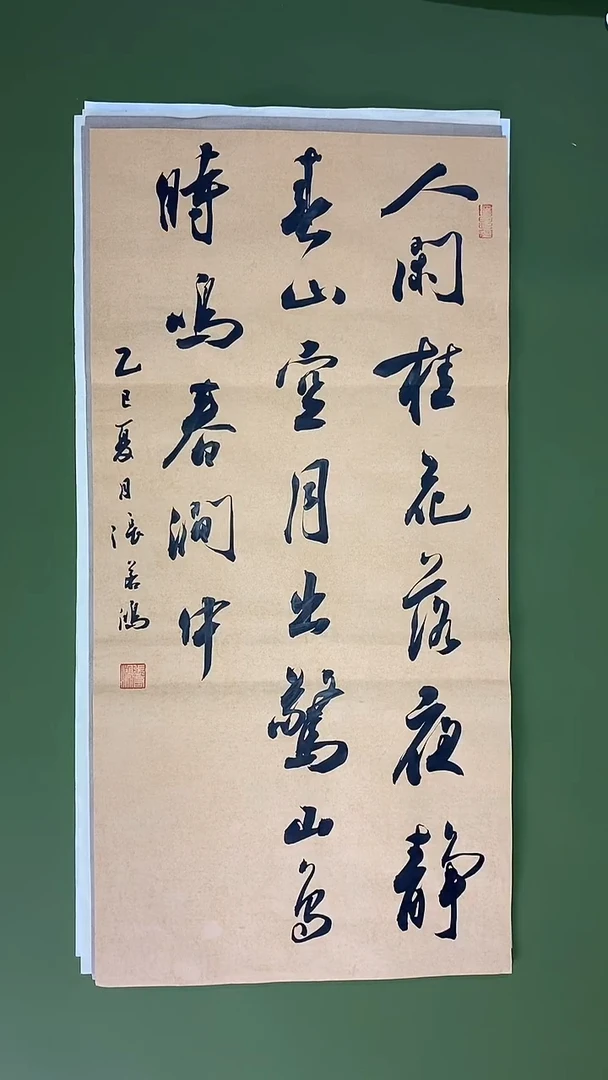 人閑桂花落夜静
春山空月出驚山鳥
時鳴春澗中
乙巳夏月張若鴻